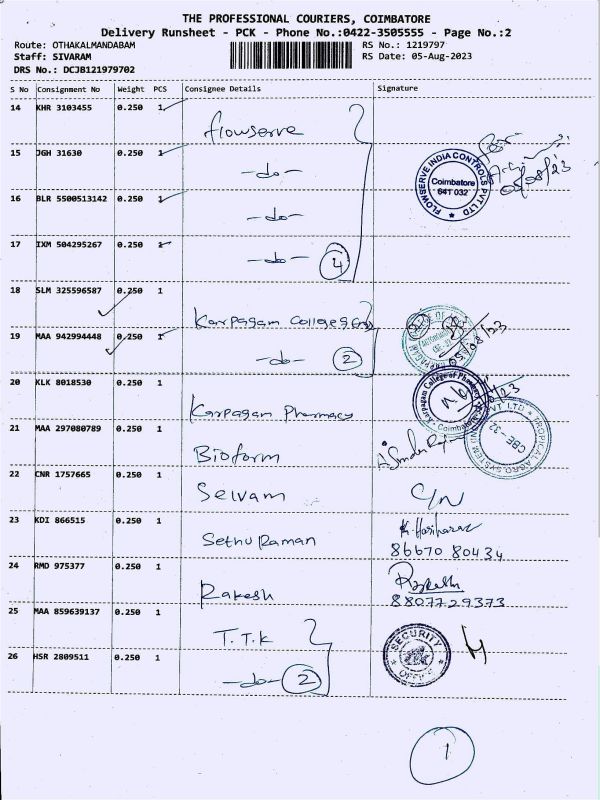 THE PROFESSIONAL COURIERS, COIMBATORE
Delivery Runsheet - PCK - Phone No.:0422-3505555 - Page No.:2
Route: OTHAKALMANDABAM RS No.: 1219797
Staff: SIVARAM RS Date: 05-Aug-2023
DRS No.: DCJB121979702
S No Consignment No Weight PCS Consignee Details Signature
14 KHR 3103455 0.250 1 flowserve
15 JGH 31630 0.250 1 -do-
FLOWSERVE INDIA CONTROLS PVT LTD
Coimbatore
641 032
16 BLR 5500513142 0.250 1 -do-
17 IXM 504295267 0.250 1 -do- 4
18 SLM 325596587 0.250 1 Karpagam College
19 MAA 942994448 0.250 1 -do- 2
20 KLK 8018530 0.250 1 Karpagam Pharmacy
Karpagam College of Pharmacy
Coimbatore
21 MAA 297080789 0.250 1 Bioform
TROPICAL AGRO SYSTEM PVT LTD
CBE - 32
22 CNR 1757665 0.250 1 Selvam C/N
23 KDI 866515 0.250 1 Sethu Raman K. Hariharan
86670 80434
24 RMD 975377 0.250 1 Rakesh
8807729373
25 MAA 859639137 0.250 1 T.T.K
SECURITY
OFFICE
26 HSR 2809511 0.250 1 -do- 2
1